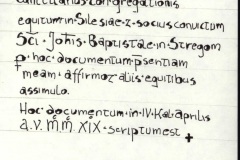 cancellarius congregationis
equitum in Silesiae z socius convictum
Sc̄i · Joh̄is · Baptistae · in · Stregom
p̱ · hoc · documentum · p̄sentiam
meam · affirmo · aliis · equitibus
assimulo.
Hoc documentum · in · IV · Kal · aprilis
a. v. m̊. m̊. XIX · scriptum est +